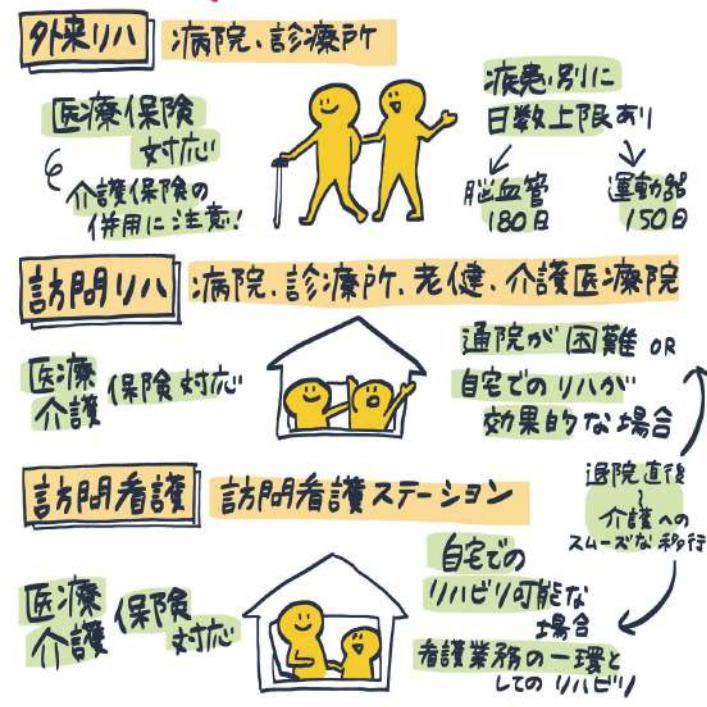 外来リハ 病院、診療所
医療保険
対応
介護保険の
併用に注意!
疾患別に
日数上限あり
脳血管
180日
運動器
150日
訪問リハ 病院、診療所、老健、介護医療院
医療
介護
保険対応
通院が困難 OR
自宅でのリハが
効果的な場合
退院直後
〜
介護への
スムーズな移行
訪問看護 訪問看護ステーション
医療
介護
保険
対応
自宅での
リハビリ可能な
場合
看護業務の一環と
してのリハビリ